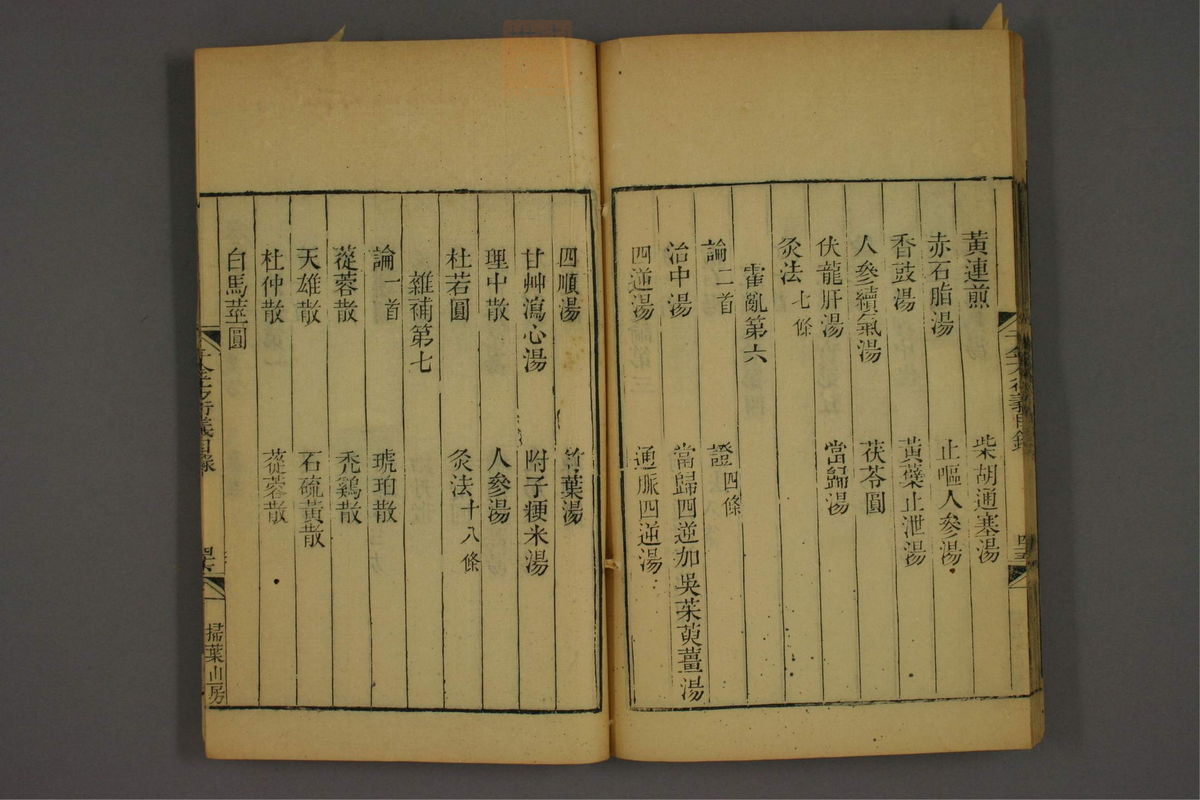 黃連煎　柴胡通塞湯
赤石脂湯　止嘔人參湯
香豉湯　黃蘗止泄湯
人參續氣湯　茯苓圓
伏龍肝湯　當歸湯
灸法七條
霍亂第六
論二首　證四條
治中湯　當歸四逆加吳茱萸薑湯
四逆湯　通脈四逆湯
四順湯　竹葉湯
甘艸瀉心湯　附子粳米湯
理中散　人參湯
杜若圓　灸法十八條
雜補第七
論一首　琥珀散
蓯蓉散　禿鷄散
天雄散　石硫黃散
杜仲散　蓯蓉散
白馬莖圓
千金方衍義目錄　四六　掃葉山房